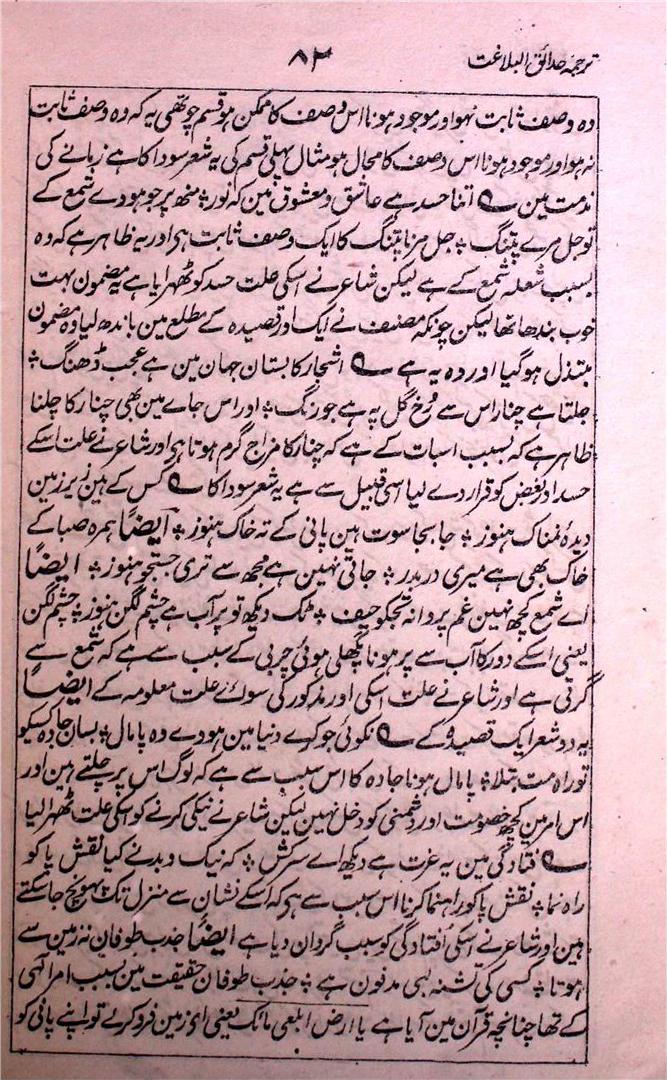 ترجمہ حدائق البلاغت
۸۳
وہ وصف ثابت نہو اور موجود ہونا اس وصف کا ممکن ہو قسم چوتھی یہ کہ وہ وصف ثابت
نہ ہو اور موجود ہونا اس وصف کا محال ہو مثال پہلی قسم کی یہ شعر سودا کا ہے زمانے کی
مذمت مین ؎ اتنا حسد ہے عاشق و معشوق مین کہ نور ٭ منھ پر جو ہووے شمع کے
تو جل مرے پتنگ ٭ جل مرنا پتنگ کا ایک وصف ثابت ہی اور یہ ظاہر ہے کہ وہ
بسبب شعلہ شمع کے ہے لیکن شاعر نے اسکی علت حسد کو ٹھہرایا ہے یہ مضمون بہت
خوب بندھا تھا لیکن چونکہ مصنف نے ایک اور قصیدہ کے مطلع مین باندھ لیا وہ مضمون
مبتذل ہو گیا اور وہ یہ ہے ؎ اشجار کا بستان جہان مین ہے عجب ڈھنگ ٭
جلتا ہے چنار اس سے رُخ گل پہ ہے جو رنگ ٭ اور اس جاے مین بھی چنار کا جلنا
ظاہر ہے کہ بسبب اسبات کے ہے کہ چنار کا مزاج گرم ہوتا ہی اور شاعر نے علت اسکے
حسد اور بغض کو قرار دے لیا اسی قبیل سے ہے یہ شعر سودا کا ؎ کس کے ہین زیر زمین
دیدۂ نمناک ہنوز ٭ جا بجا سوت ہین پانی کے تہ خاک ہنوز ٭ ایضًا ہمرہ صبا کے
خاک بھی ہے میری در بدر ٭ جاتی نہین ہے مجھ سے تری جستجو ہنوز ٭ ایضًا
اے شمع کچھ نہین غم پروانہ تجکو حیف ٭ ٹک دیکھ تو پر آب ہے چشم لگن ہنوز ٭ چشم لگن
یعنی اسکے دور کا آب سے پر ہونا پگھلی ہوئی چربی کے سبب سے ہے کہ شمع سے
گرتی ہے اور شاعر نے علت اسکی اور مذکور کی سواے علت معلومہ کے ایضًا
یہ دو شعر ایک قصیدہ کے ؎ نکوئی جو کرے دنیا مین ہووے وہ پامال ٭ بسان جادہ کسیکو
تو راہ مت بتلا ٭ پامال ہونا جادہ کا اس سبب سے ہے کہ لوگ اس پر چلتے ہین اور
اس امر مین کچھ خصومت اور دشمنی کو دخل نہین لیکن شاعر نے نیکی کرنے کو اسکی علت ٹھہرالیا
؎ فتادگی مین یہ عزت ہے دیکھ اے سرکش ٭ کہ نیک و بد نے کیا نقش پا کو
راہ نما ٭ نقش پا کو راہنما کرنا اس سبب سے ہی کہ اسکے نشان سے منزل تک پہونچ جا سکتے
ہین اور شاعر نے اسکی افتادگی کو سبب گردان دیا ہے ایضًا جذب طوفان نہ زمین سے
ہوتا ٭ کسی کی تشنہ لبی مدفون ہے ٭ جذب طوفان حقیقت مین بسبب امر الٰہی
کے تھا چنانچہ قرآن مین آیا ہے یا ارض ابلعی مائک یعنی ای زمین فرو کرلے تو اپنے پانی کو